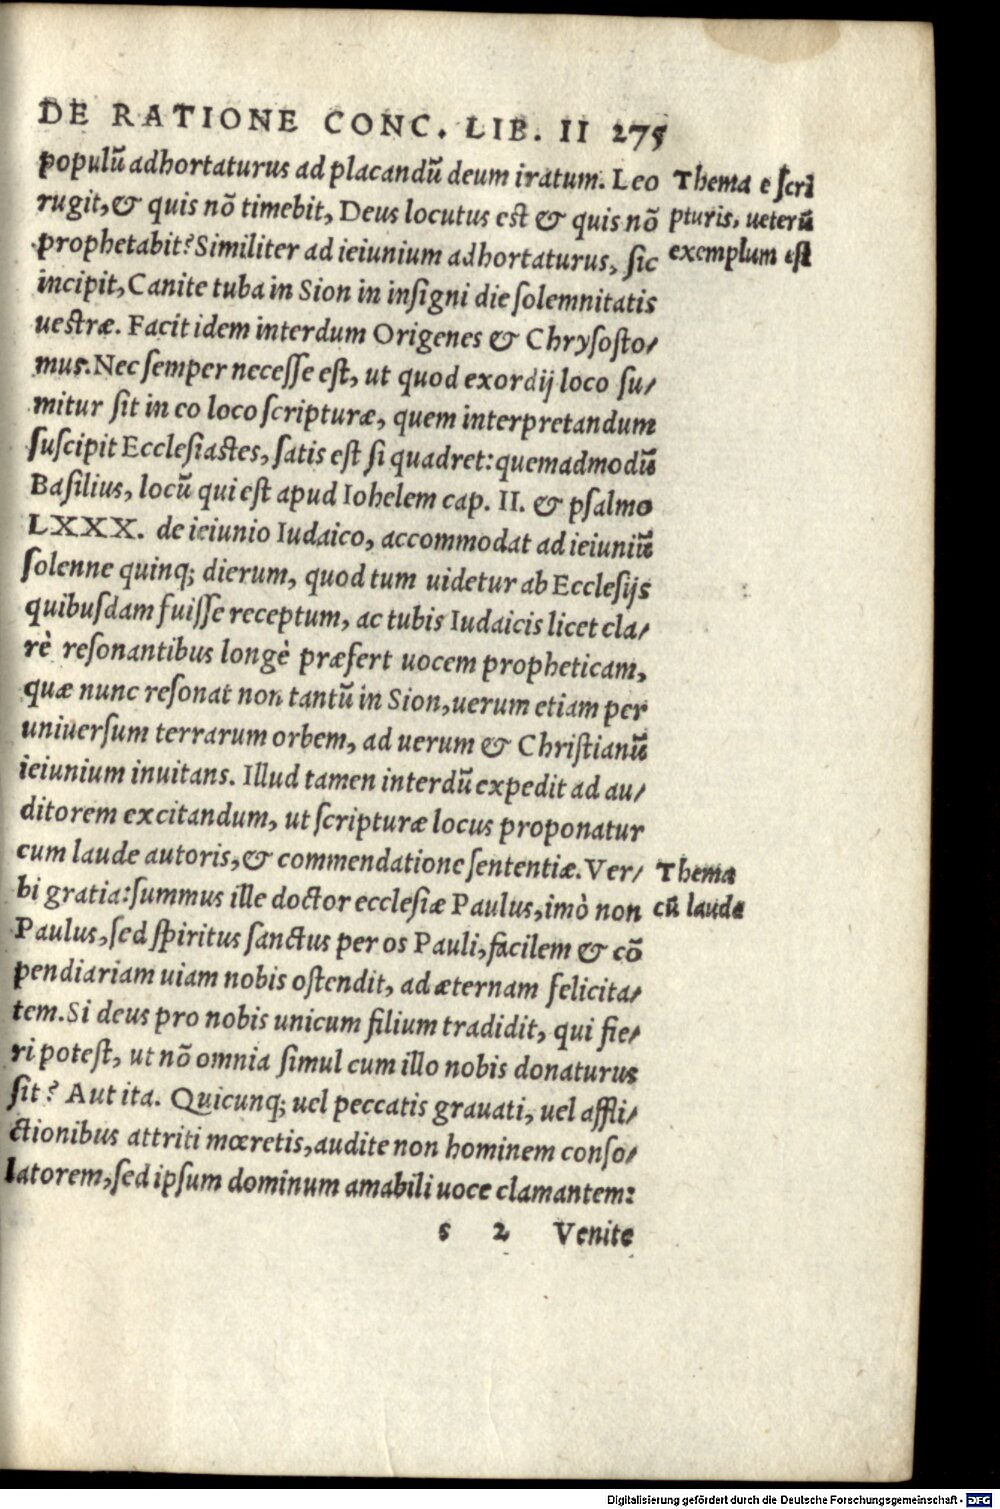 DE RATIONE CONC. LIB. II 275
populū adhortaturus ad placandū deum iratum. Leo
rugit, & quis nō timebit, Deus locutus est & quis nō
prophetabit? Similiter ad ieiunium adhortaturus, sic
incipit, Canite tuba in Sion in insigni die solemnitatis
uestræ. Facit idem interdum Origenes & Chrysosto/
mus. Nec semper necesse est, ut quod exordij loco su/
mitur sit in eo loco scripturæ, quem interpretandum
suscipit Ecclesiastes, satis est si quadret: quemadmodū
Basilius, locū qui est apud Iohelem cap. II. & psalmo
LXXX. de ieiunio Iudaico, accommodat ad ieiuniū
solenne quinq; dierum, quod tum uidetur ab Ecclesijs
quibusdam fuisse receptum, ac tubis Iudaicis licet cla/
rè resonantibus longè præfert uocem propheticam,
quæ nunc resonat non tantū in Sion, uerum etiam per
uniuersum terrarum orbem, ad uerum & Christianū
ieiunium inuitans. Illud tamen interdū expedit ad au/
ditorem excitandum, ut scripturæ locus proponatur
cum laude autoris, & commendatione sententiæ. Ver/
bi gratia: summus ille doctor ecclesiæ Paulus, imò non
Paulus, sed spiritus sanctus per os Pauli, facilem & cō
pendiariam uiam nobis ostendit, ad æternam felicita/
tem. Si deus pro nobis unicum filium tradidit, qui fie/
ri potest, ut nō omnia simul cum illo nobis donaturus
sit? Aut ita. Quicunq; uel peccatis grauati, uel affli/
ctionibus attriti mœretis, audite non hominem conso/
latorem, sed ipsum dominum amabili uoce clamantem:
s 2 Venite
Thema e scri
pturis, ueterū
exemplum est
Thema
cū laude
Digitalisierung gefördert durch die Deutsche Forschungsgemeinschaft - DFG